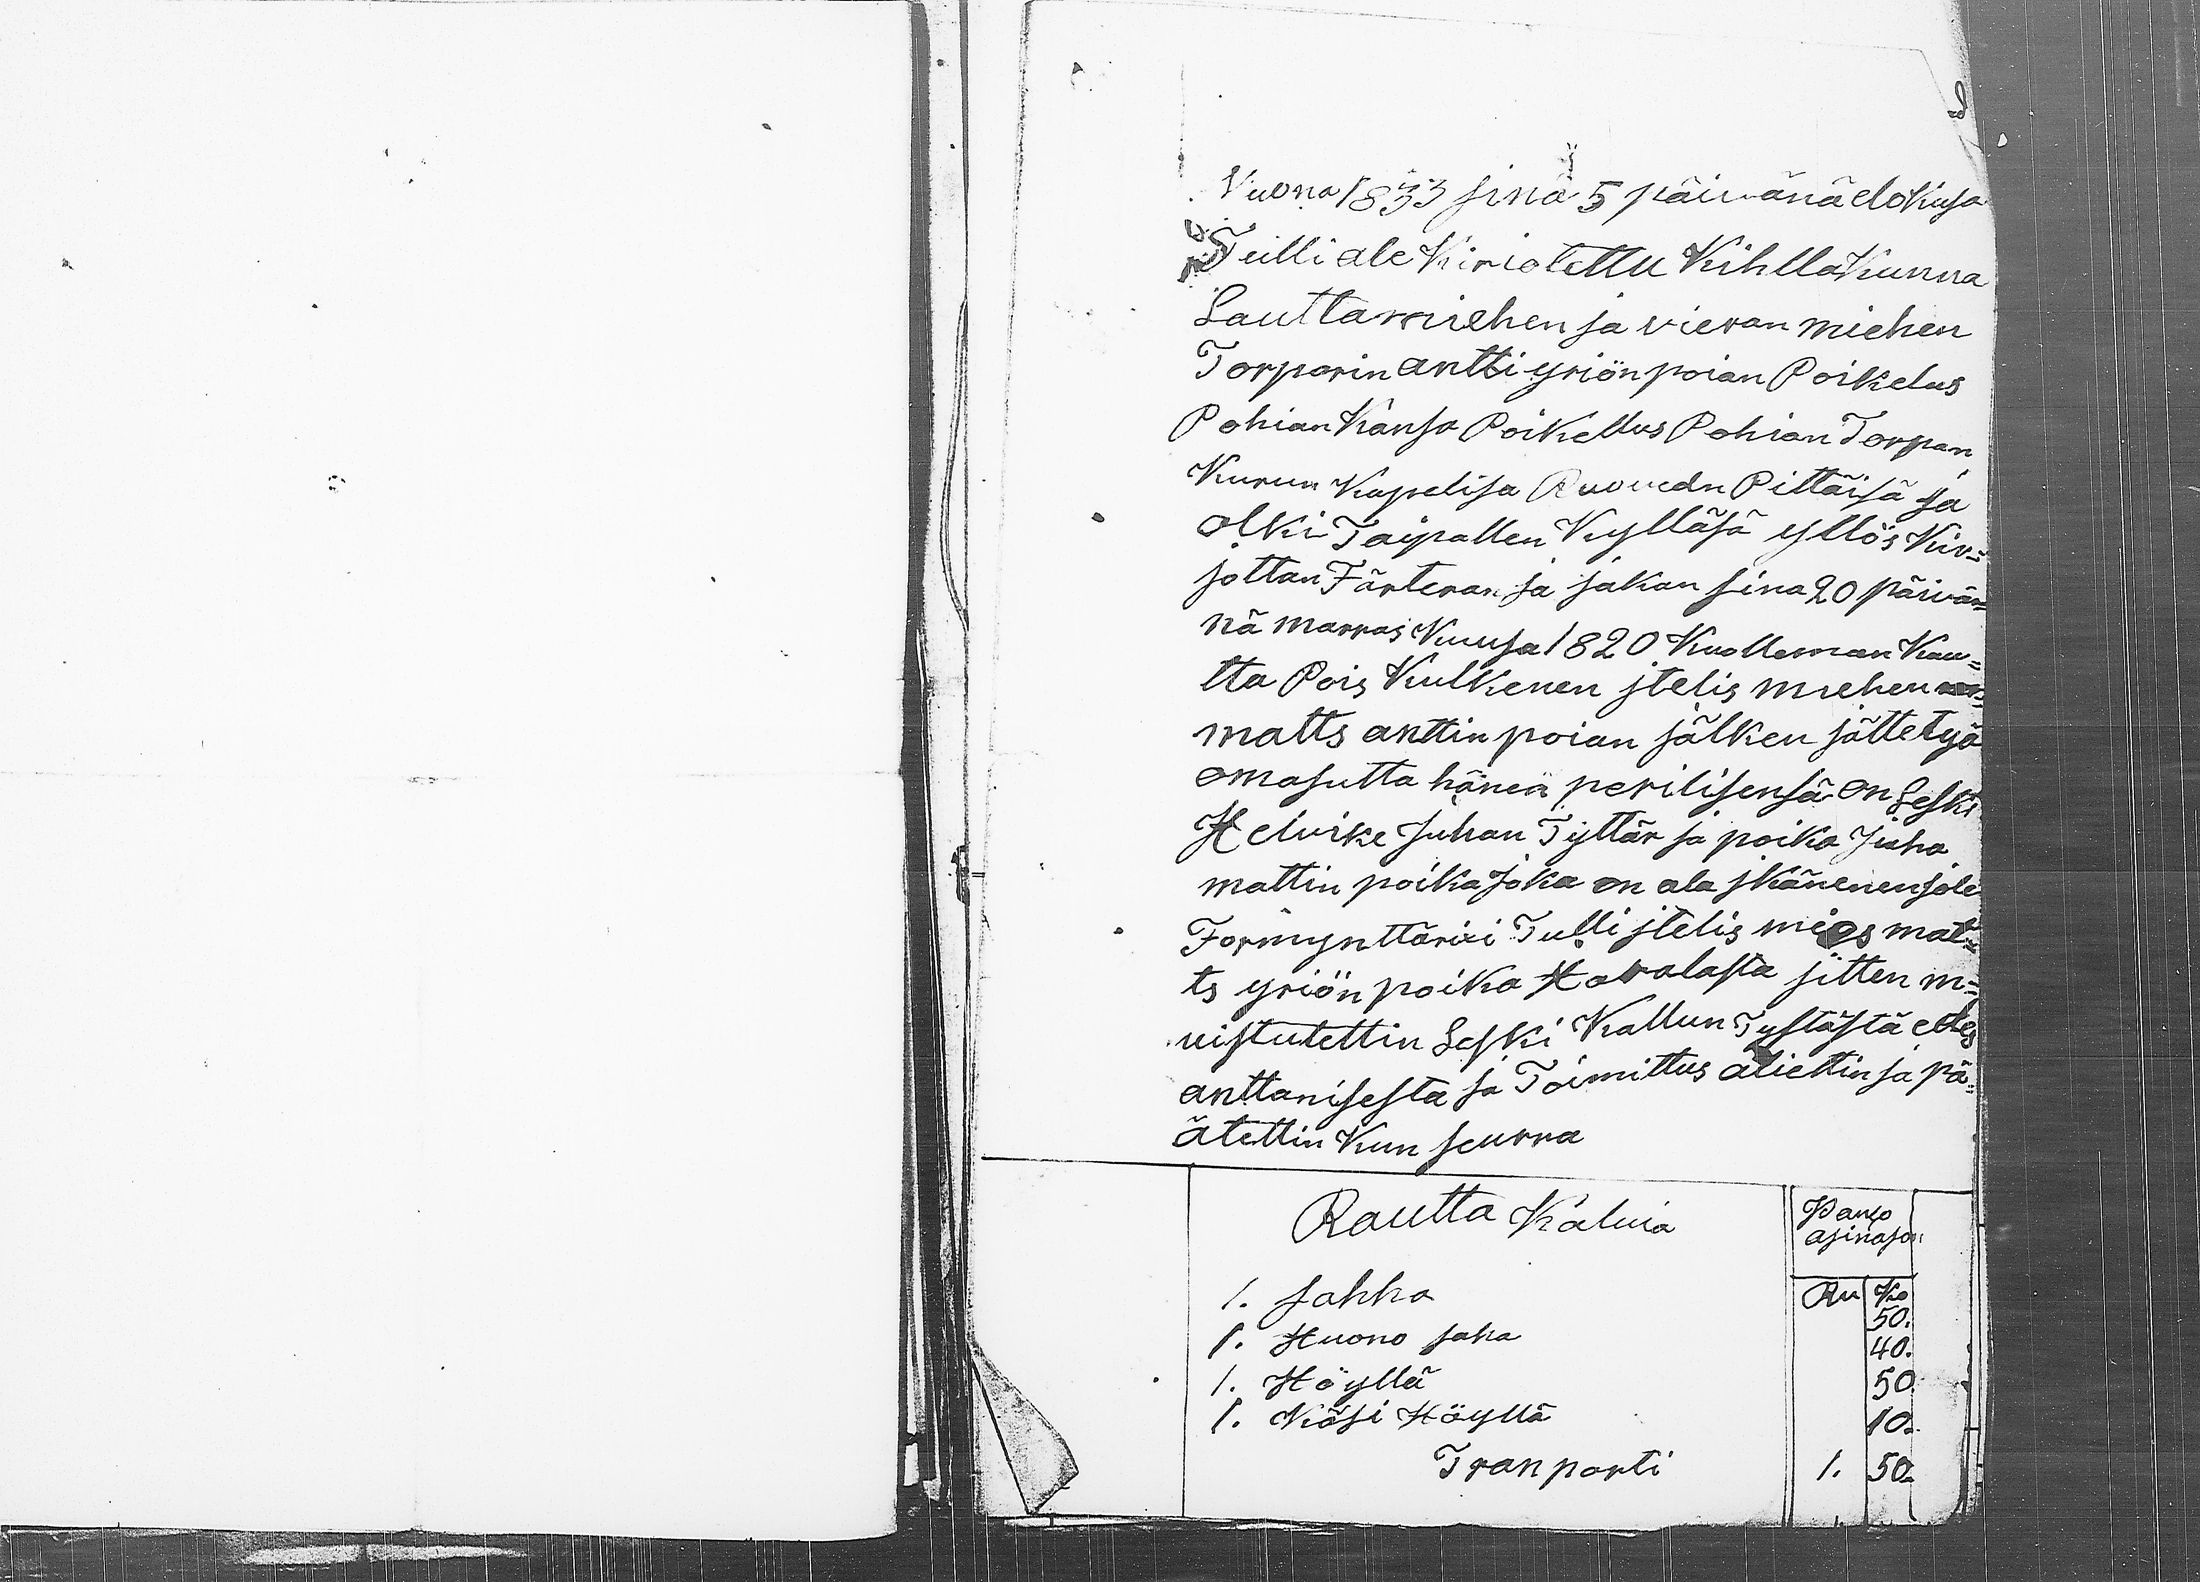 Vuona 1833 sinä 5 päivänä elokusa
Tulli ale Kiriotettu KihllaKunna
Lauttamiehen ja vieran miehen
Torparin antti yriönpoian Poikelus
Pohian Kansa Poikellus Pohian Torpan
Kurun Kapelisa Ruovedn Pittäisä ja
olki Taipallen Kylläsä yllös Kir=
jottan Färteran ja jakan sina 20 päivä=
nä marras Kuusa 1820 Kuolleman Kau=
tta Pois Kulkenen jtelis miehen
matts anttin poian jälken jättetyä
omasutta hänen perilisensä on Leski
Helvike Juhan Tyttär ja poika Juha
mattin poika joka on ala jkänenen jole
Formynttärixi Tulli jtelis mies mat=
ts yriön poika Havalasta sitten m=
uistutettin Leski Kallun Tystästä edes
anttanisesta ja Toimittus aliettin ja pä=
ätettin Kun seurra
Rautta Kaluia
Pano
asinason
Ru Ko
1. sahha 50.
1. Huono saha 40.
1. Höyllä 50.
1. Käsi Höyllä 10.
Tranporti 1. 50.